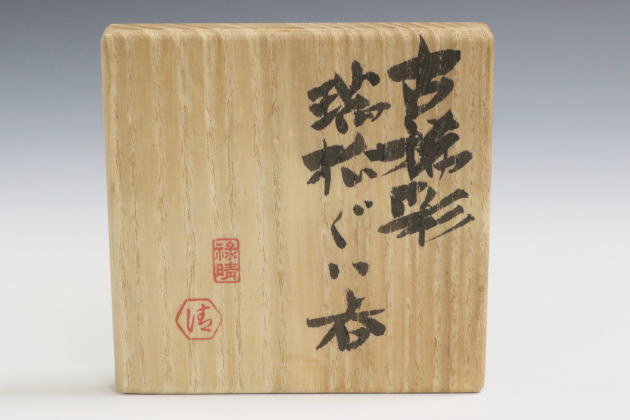 古稀彩
瑞松ぐい呑
禄晴
清